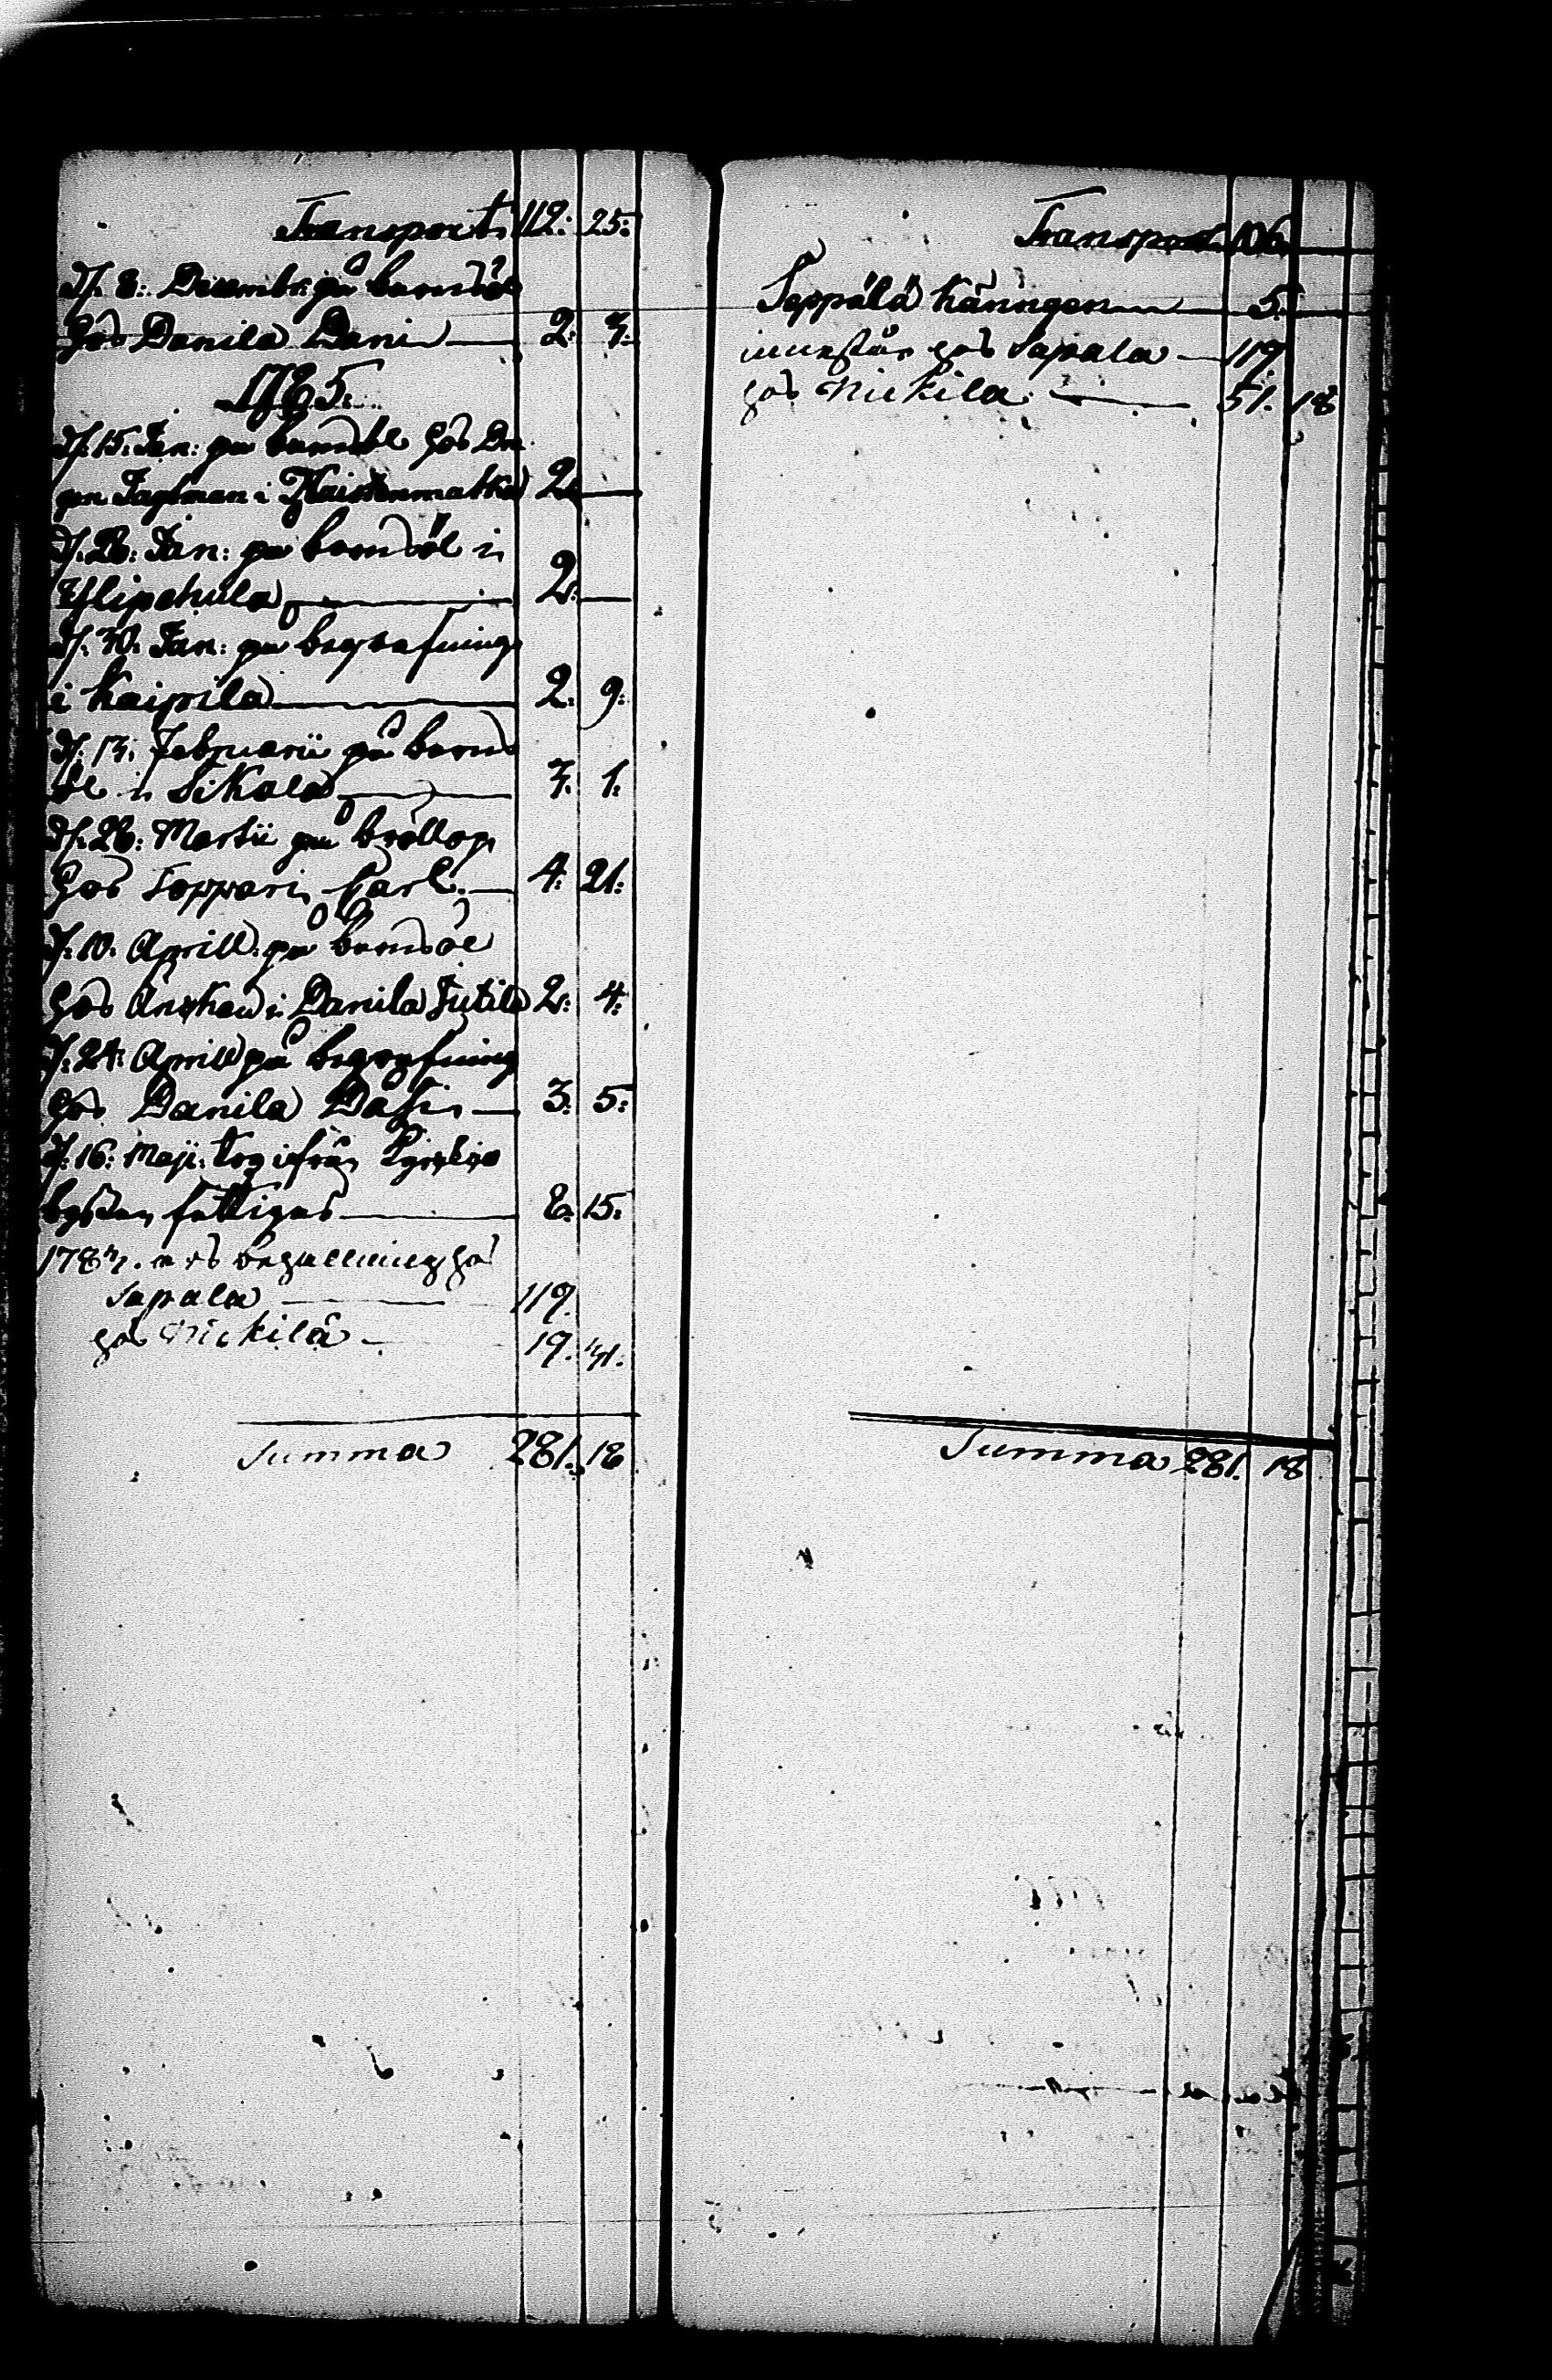 Transport. 112: 25:
d: 8: Decembr: på barnsöl
hos Danila Dani 2: 3:
1785:
d: 15: Jan: på barnsöl hos Dra
gon Tagtman i Kaistenmatka 2
d: 28: Jan: på barnsöl i
Ylipehula 2:
d: 30: Jan: på begrafning
i Kaipila 2: 9:
d: 13: Februarii på barns
öl i Sikala 3: 1:
d: 28: Martii på bröllop
hos Toppari Carl 4: 21:
d: 10: Aprill: på barnsöl
hos Änckan i Danila Jutila 2: 4:
d: 24: Aprill på begrafning
hos Danila 3: 5:
d: 16: Maji: tog ifrån Kyrkio
byssan fattigas 8: 15:
1783. behållning hos
Sapala 119.
hos Nickilä 19. 31.
Summa 281. 18
Transport. 106
Seppälä käringen 5
innestår hos Sapala 119
hos Nickila 51. 18
Summa 281. 18